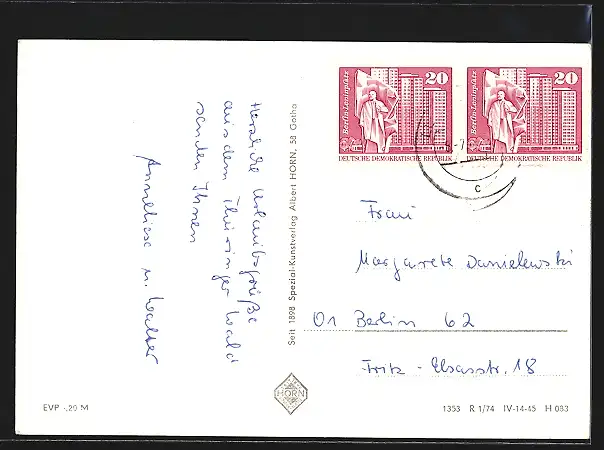 Herzliche Urlaubsgrüße
aus dem Thüringer Wald
senden Ihnen
Anneliese u. Walter
Seit 1898 Spezial-Kunstverlag Albert HORN, 58 Gotha
HORN
EVP -,20 M
Berlin Leninplatz
20
DEUTSCHE DEMOKRATISCHE REPUBLIK
Berlin Leninplatz
20
DEUTSCHE DEMOKRATISCHE REPUBLIK
c
Frau
Margarete Danielewski
01 Berlin 62
Fritz-Elsasstr. 18
1353 R 1/74 IV-14-45 H 083